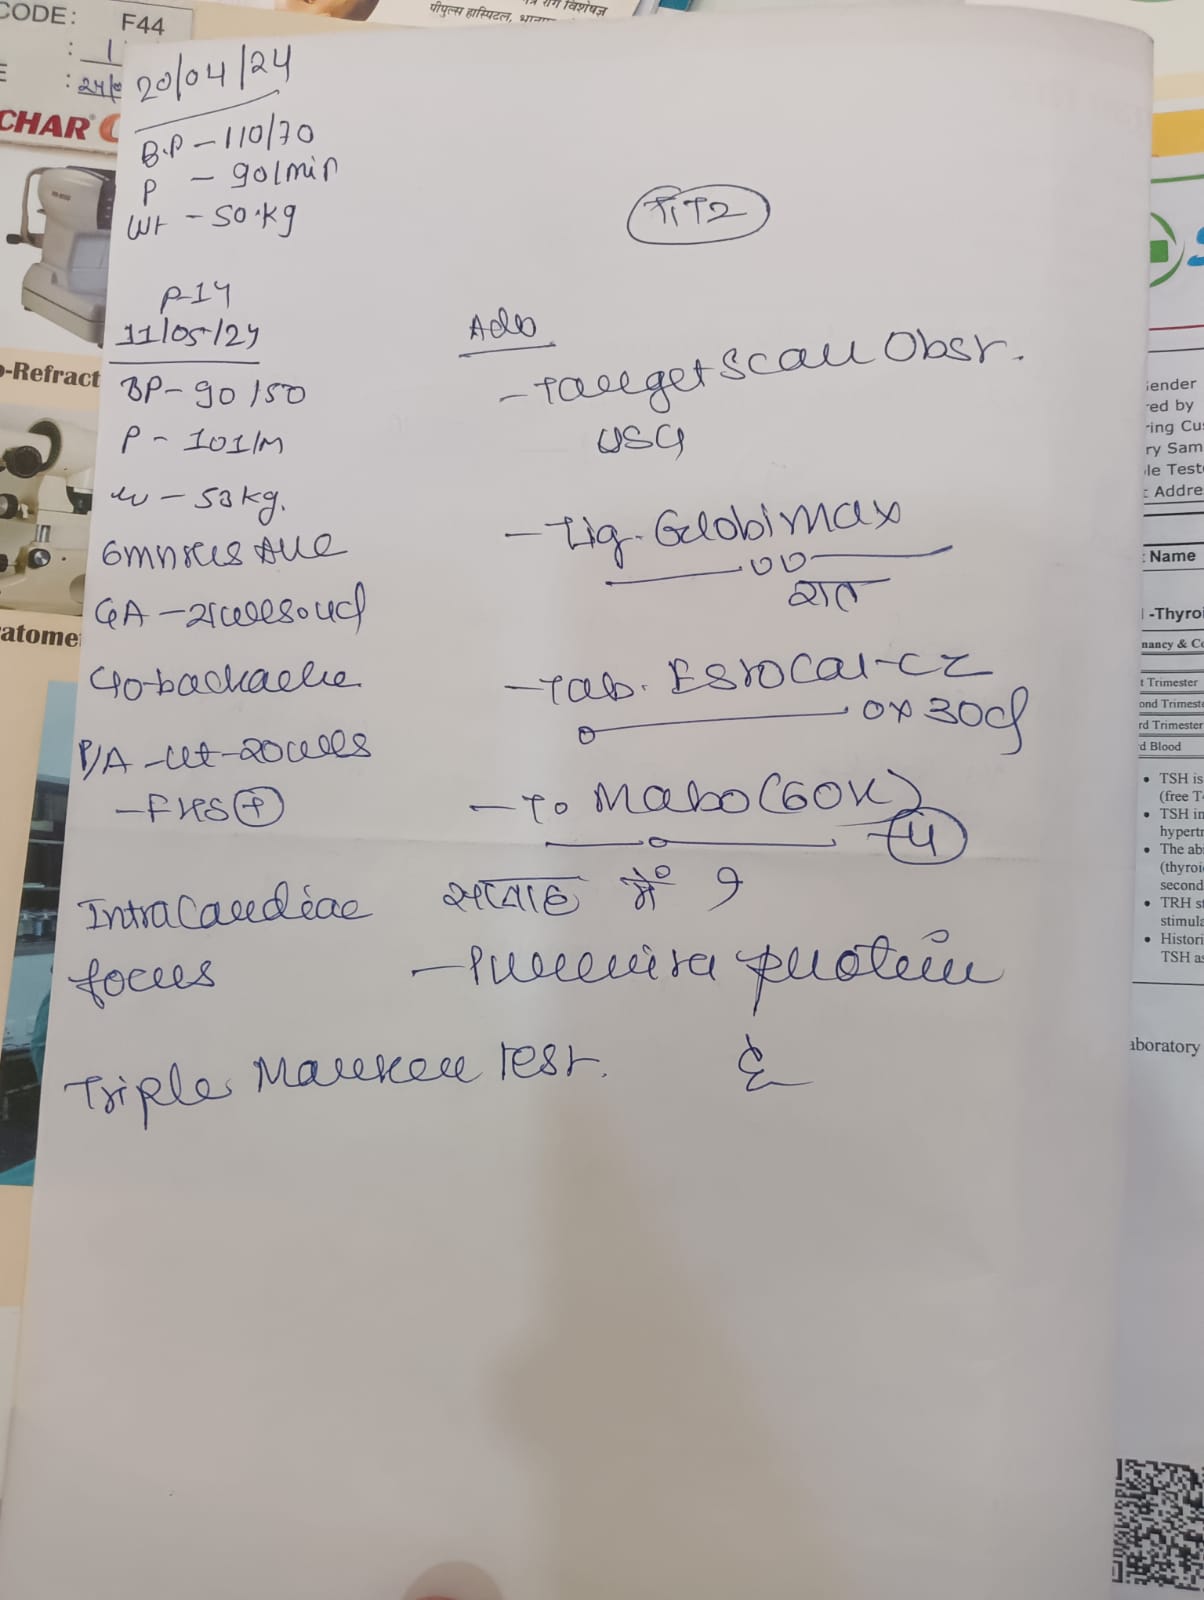 CODE: F44
: 1
: 24/0
CHAR
o-Refract
atome
पीपुल्स हास्पिटल,
20/04/24
B.P - 110/70
P - 90/min
Wt - 50.kg
TT2
P-14
11/05/24
BP - 90/50
P - 101/M
w - 53kg.
GA -
C/o-backache
P/A - Ut-20weeks
- FHS (+)
Intracardiac
focus
Triple Marker Test.
Adv
- Target Scan Obst.
USG
- Liq. Globimax
रात
- Tab. EstoCal-CZ
0x30d
- To Mabo (60K)
4
सप्ताह में १
- protein
Gender
red by
ring Cus
ry Sam
le Test
t Addre
t Name
l -Thyroi
nancy & Co
t Trimester
ond Trimest
rd Trimester
d Blood
• TSH is
(free T4
• TSH in
hypert
• The ab
(thyroi
second
• TRH st
stimula
• Histori
TSH as
aboratory